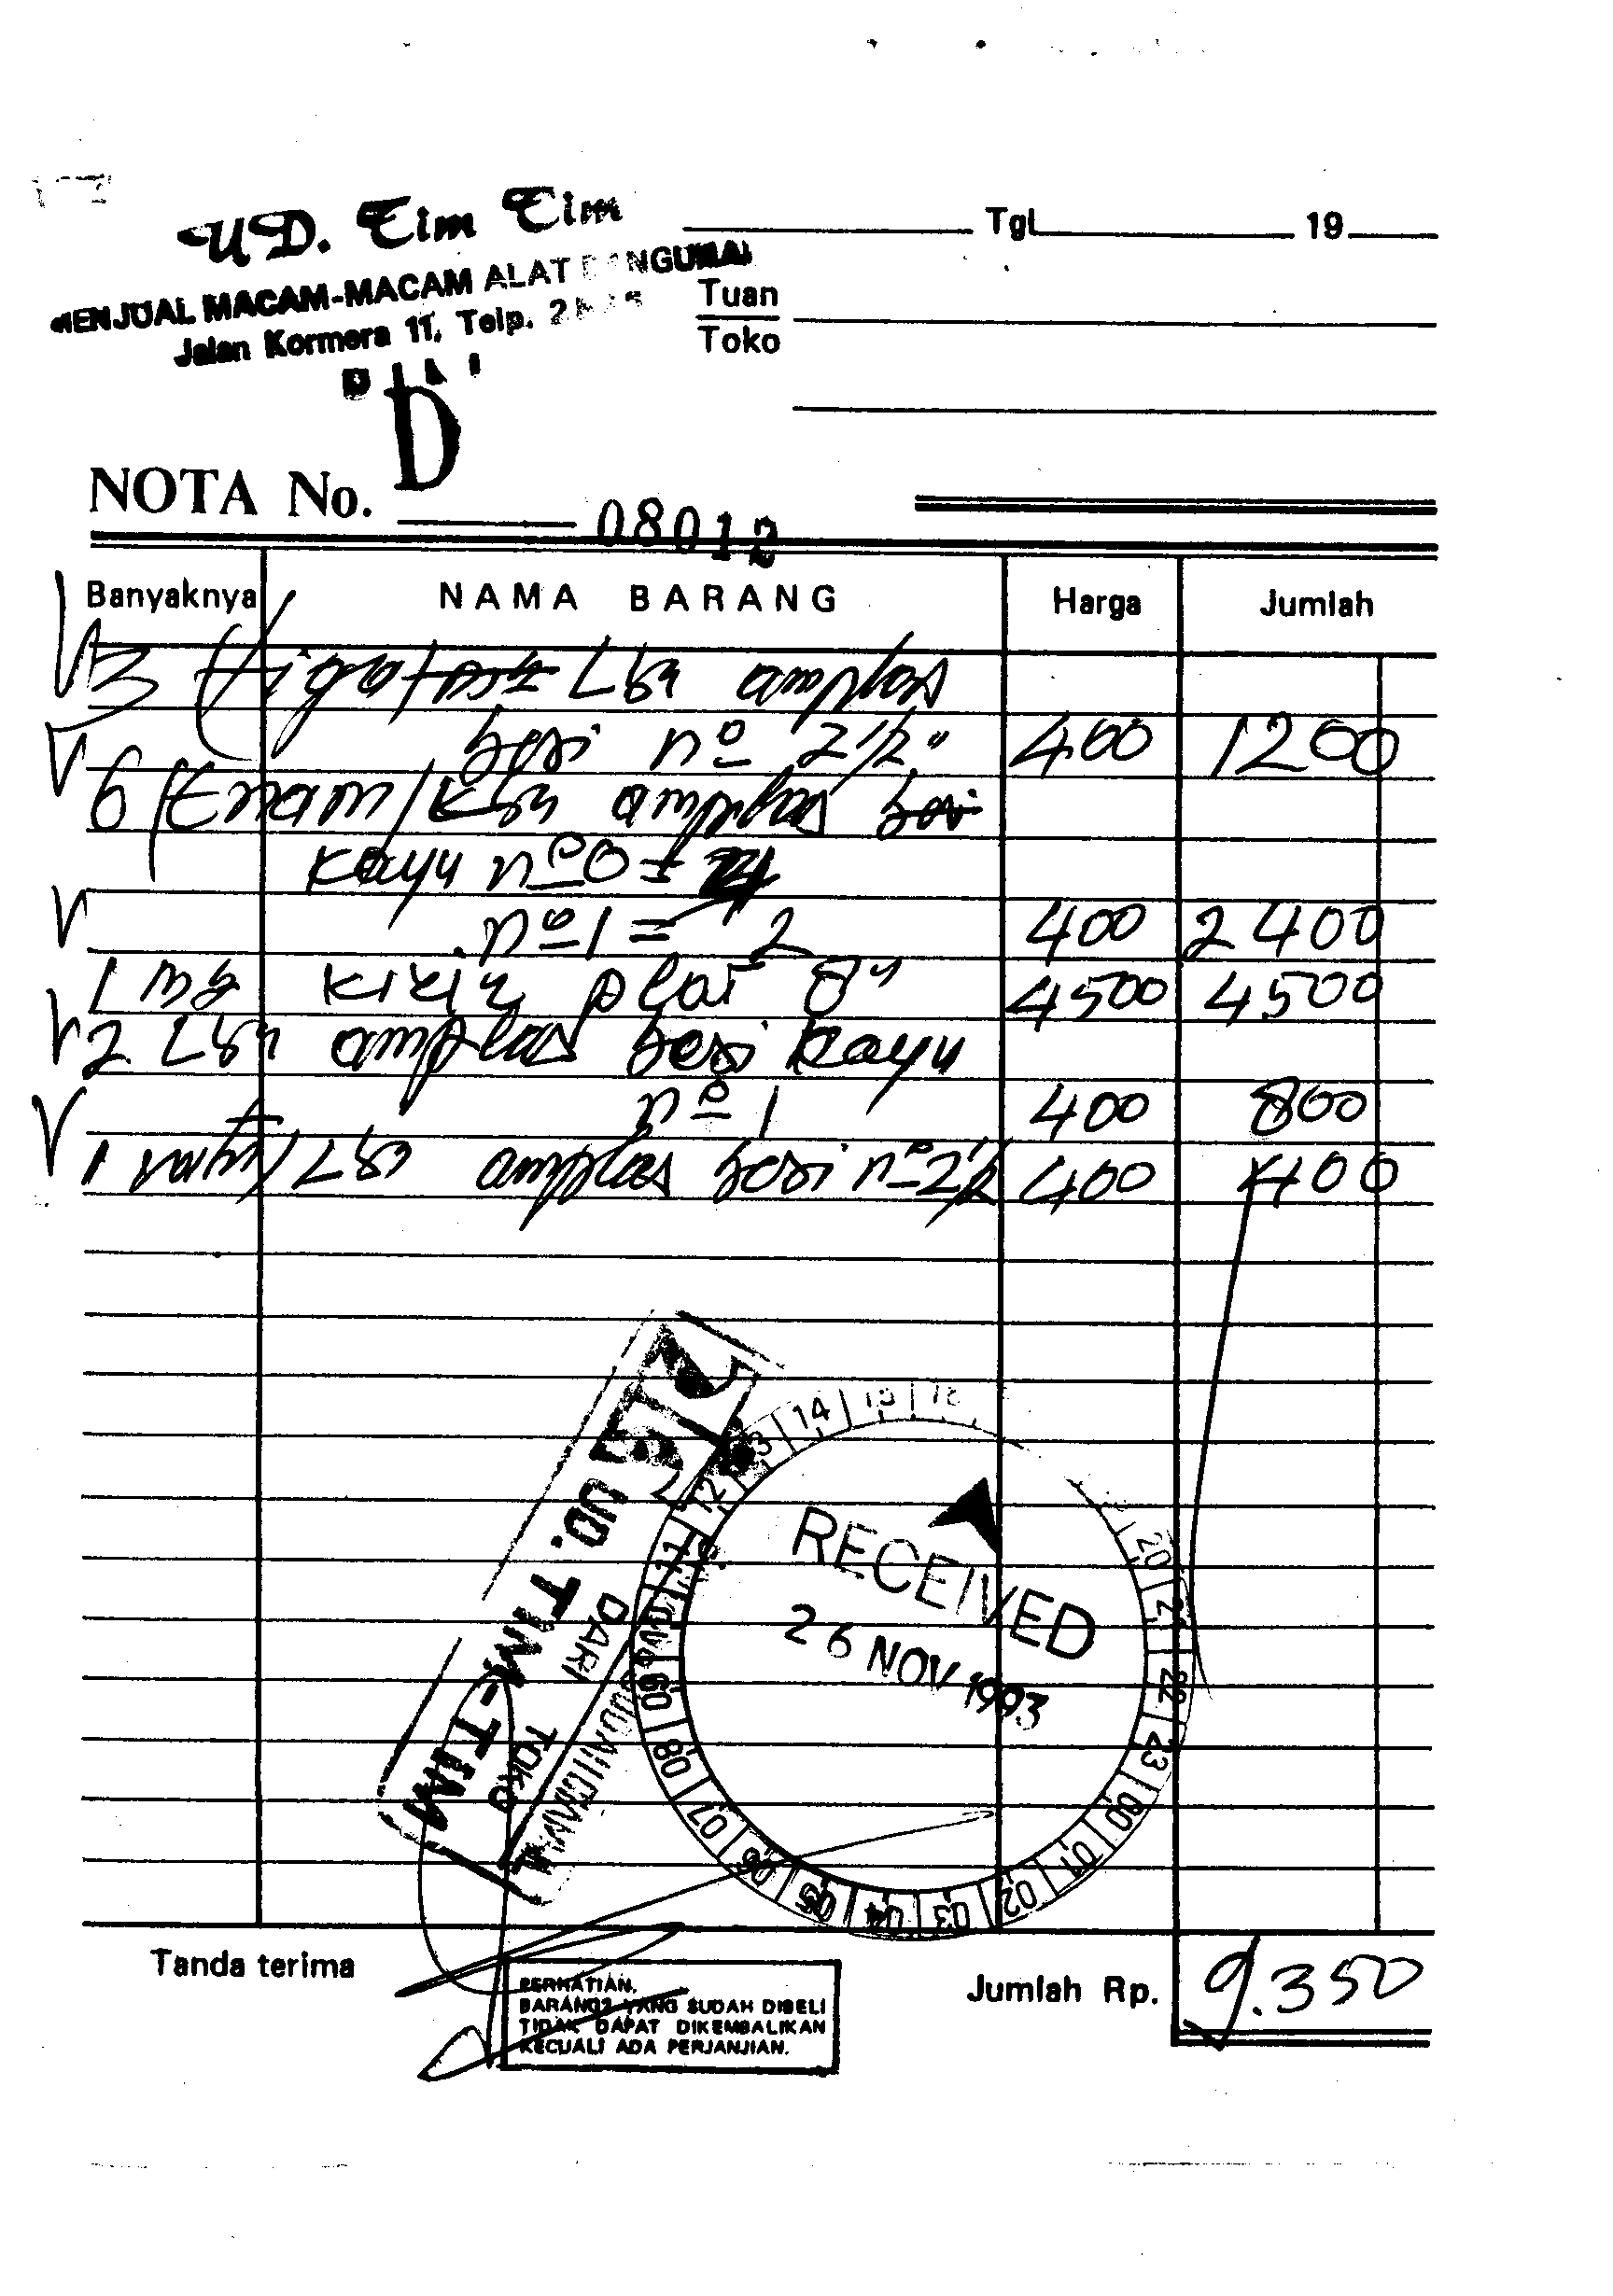 UD. Tim Tim
MENJUAL MACAM-MACAM ALAT BANGUNAN
Jalan Kormera 11, Telp.
"D"
Tgl 19
Tuan
Toko
NOTA No. 08012
Banyaknya NAMA BARANG Harga Jumlah
3 (tiga) Lbr amplas
besi nº 2½" 400 1200
6 (Enam) Lbr amplas besi
kayu nº 0 = 4
nº 1 = 2 400 2400
1 plat 8" 4500 4500
2 Lbr amplas besi kayu
nº 1 400 800
1 Lbr amplas besi nº 2½ 400 400
UD. TIM-TIM
DARI TOKO
12 13 14 15 16 20 21 22 23 00 01 02 03 04 05 06 07 08 09 10 11
RECEIVED
26 NOV 1993
Tanda terima
PERHATIAN.
BARANG2 YANG SUDAH DIBELI
TIDAK DAPAT DIKEMBALIKAN
KECUALI ADA PERJANJIAN.
Jumlah Rp. 9.350